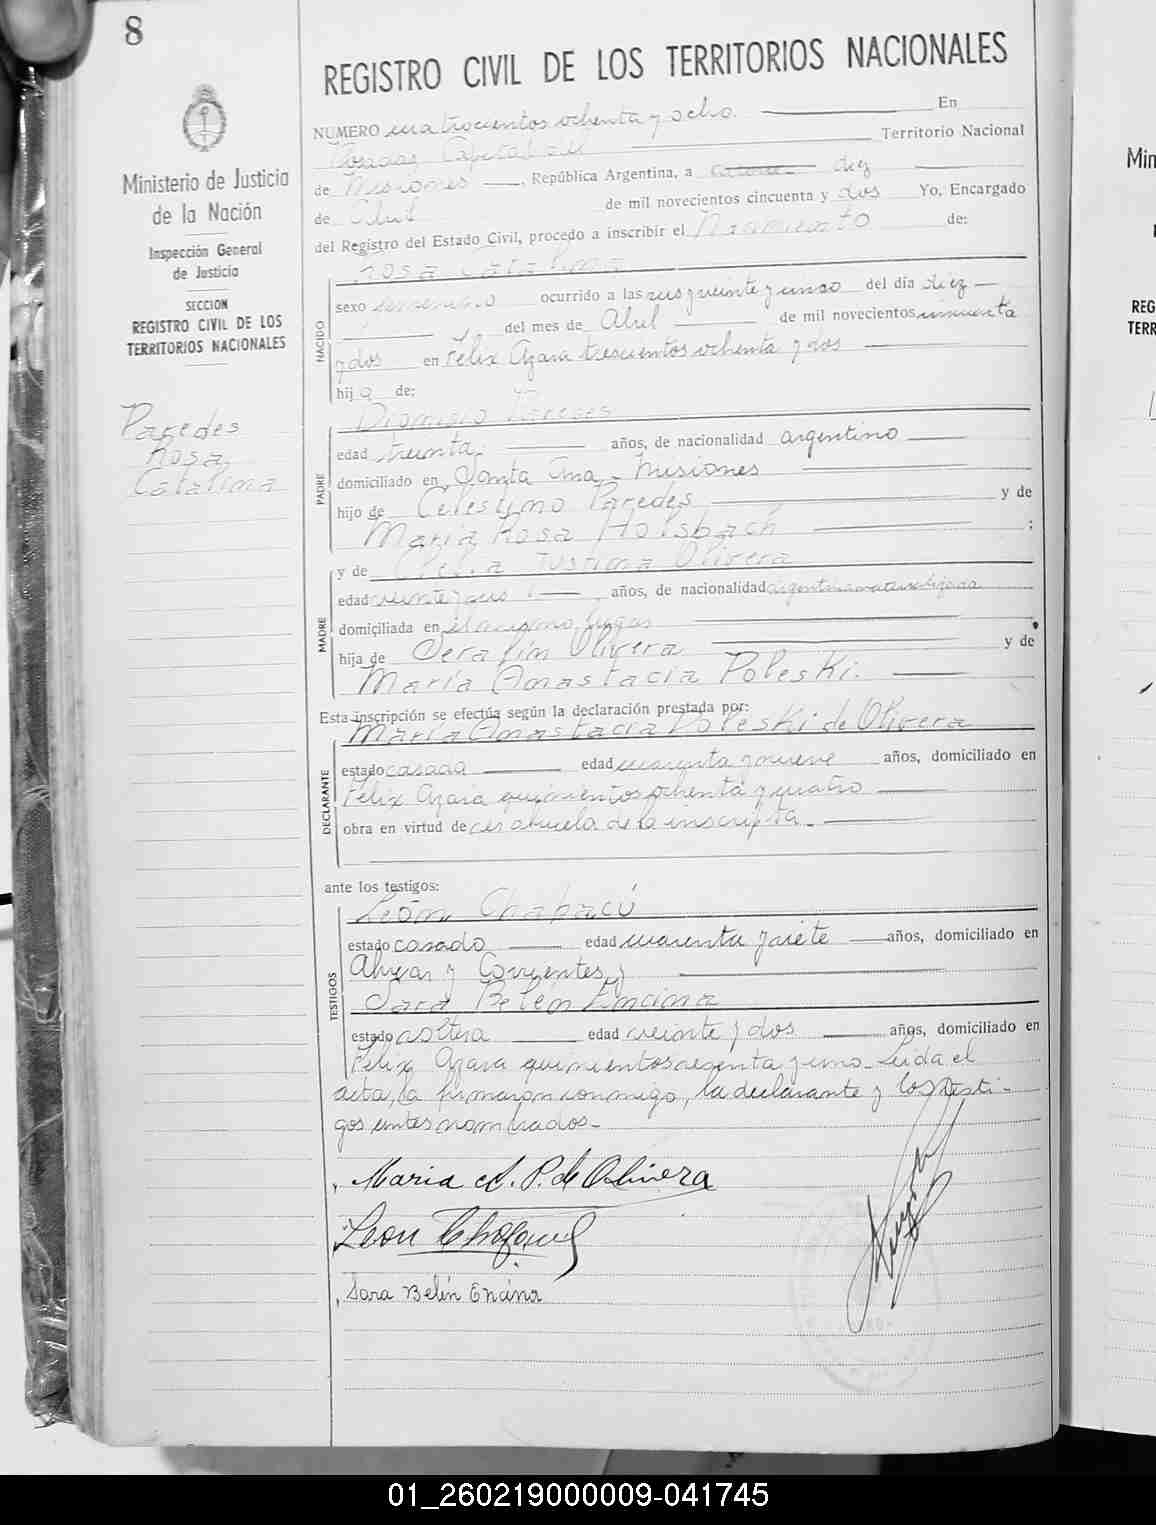 8
REGISTRO CIVIL DE LOS TERRITORIOS NACIONALES
Ministerio de Justicia
de la Nación
Inspección General
de Justicia
SECCION
REGISTRO CIVIL DE LOS
TERRITORIOS NACIONALES
Paredes
Rosa
Catalina
NUMERO cuatrocientos ochenta y ocho. En
Posadas Capital del Territorio Nacional
de Misiones, República Argentina, a diez
de Abril de mil novecientos cincuenta y dos Yo, Encargado
del Registro del Estado Civil, procedo a inscribir el Nacimiento de:
Rosa Catalina
NACIDO
sexo femenino ocurrido a las seis y veinte y cinco del día diez
del mes de Abril de mil novecientos cincuenta
y dos en Félix Azara trescientos ochenta y dos
hija de:
Dionisio Paredes
PADRE
edad treinta años, de nacionalidad argentino
domiciliado en Santa Ana - Misiones
hijo de Celestino Paredes y de
María Rosa Holsbach ;
y de Justina Olivera
MADRE
edad años, de nacionalidad argentina naturalizada
domiciliada en el mismo lugar
hija de Serafín Olivera y de
María Anastacia Poleski.
Esta inscripción se efectúa según la declaración prestada por:
María Anastacia Poleski de Olivera
DECLARANTE
estado casada edad cuarenta y nueve años, domiciliado en
Félix Azara quinientos ochenta y cuatro
obra en virtud de ser abuela de la inscripta.
ante los testigos:
León
TESTIGOS
estado casado edad cuarenta y siete años, domiciliado en
Alvear y Corrientes y
Sara Belén Encina
estado soltera edad veinte y dos años, domiciliado en
Félix Azara quinientos sesenta y uno. Leída el
acta, la firmaron conmigo, la declarante y los testi-
gos antes nombrados.
Maria A. P. de Olivera
Leon
Sara Belén Encina
Min
REG
TERR
01_260219000009-041745